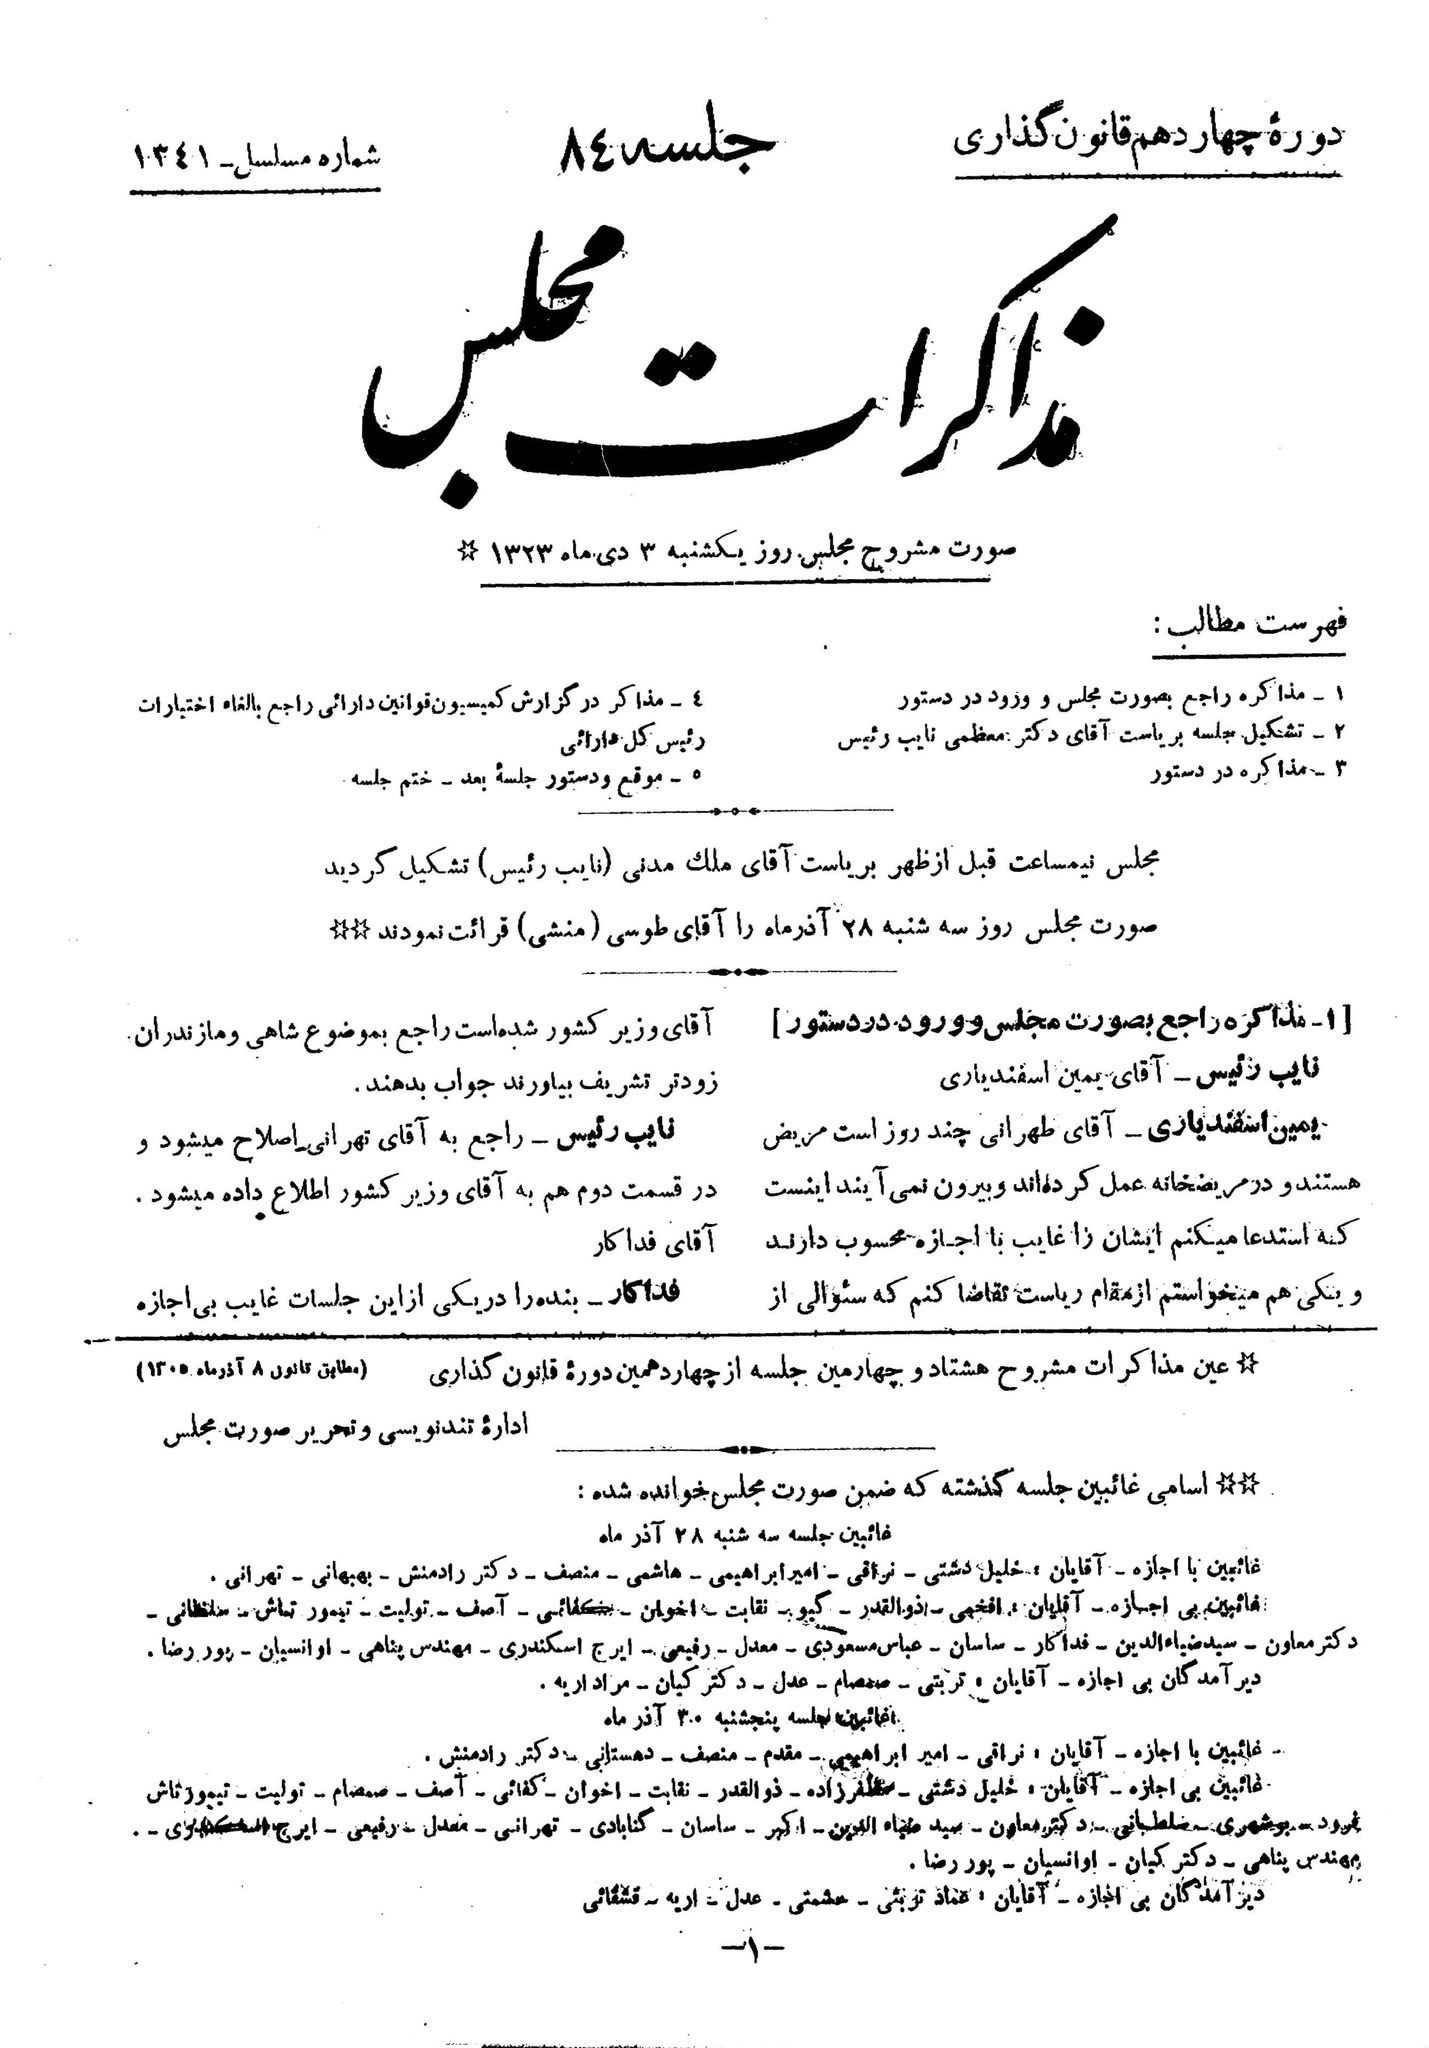 دورهٔ چهاردهم قانون گذاری
جلسه ۸٤
شماره مسلسل ـ ۱۳٤۱
مذاکرات مجلس
صورت مشروح مجلس روز یکشنبه ۳ دی ماه ۱۳۲۳ ☆
فهرست مطالب :
۱ ـ مذاکره راجع بصورت مجلس و ورود در دستور
۲ ـ تشکیل جلسه بریاست آقای دکتر معظمی نایب رئیس
۳ ـ مذاکره در دستور
٤ ـ مذاکر در گزارش کمیسیون قوانین دارائی راجع بالغاء اختیارات
رئیس کل دارائی
٥ ـ موقع و دستور جلسهٔ بعد ـ ختم جلسه
مجلس نیمساعت قبل از ظهر بریاست آقای ملك مدنی (نایب رئیس) تشکیل گردید
صورت مجلس روز سه شنبه ۲۸ آذرماه را آقای طوسی (منشی) قرائت نمودند ☆☆
[۱ـ مذاکره راجع بصورت مجلس و ورود در دستور]
نایب رئیس ـ آقای یمین اسفندیاری
یمین اسفندیاری ـ آقای طهرانی چند روز است مریض
هستند و در مریضخانه عمل کرده‌اند و بیرون نمی آیند اینست
که استدعا میکنم ایشان را غایب با اجازه محسوب دارند
و یکی هم میخواستم از مقام ریاست تقاضا کنم که سئوالی از
آقای وزیر کشور شده‌است راجع بموضوع شاهی و مازندران
زودتر تشریف بیاورند جواب بدهند .
نایب رئیس ـ راجع به آقای تهرانی اصلاح میشود و
در قسمت دوم هم به آقای وزیر کشور اطلاع داده میشود .
آقای فداکار
فداکار ـ بنده را دریکی از این جلسات غایب بی اجازه
☆ عین مذاکرات مشروح هشتاد و چهارمین جلسه از چهاردهمین دورهٔ قانون گذاری (مطابق قانون ۸ آذرماه ۱۳۰٥)
ادارهٔ تندنویسی و تحریر صورت مجلس
☆☆ اسامی غائبین جلسه گذشته که ضمن صورت مجلس خوانده شده :
غائبین جلسه سه شنبه ۲۸ آذر ماه
غائبین با اجازه ـ آقایان : خلیل دشتی ـ نراقی ـ امیر ابراهیمی ـ هاشمی ـ منصف ـ دکتر رادمنش ـ بهبهانی ـ تهرانی .
غائبین بی اجازه ـ آقایان : افخمی ـ ذوالقدر ـ گیو ـ نقابت ـ اخوان ـ کفائی ـ آصف ـ تولیت ـ تیمور تاش ـ سلطانی ـ
دکتر معاون ـ سید ضیاءالدین ـ فداکار ـ ساسان ـ عباس مسعودی ـ معدل ـ رفیعی ـ ایرج اسکندری ـ مهندس پناهی ـ اوانسیان ـ پور رضا .
دیر آمدگان بی اجازه ـ آقایان : تربتی ـ صمصام ـ عدل ـ دکتر کیان ـ مراد اریه .
غائبین جلسه پنجشنبه ۳۰ آذر ماه
غائبین با اجازه ـ آقایان : نراقی ـ امیر ابراهیمی ـ مقدم ـ منصف ـ دهستانی ـ دکتر رادمنش .
غائبین بی اجازه ـ آقایان : خلیل دشتی ـ مظفرزاده ـ ذوالقدر ـ نقابت ـ اخوان ـ کفائی ـ آصف ـ صمصام ـ تولیت ـ تیمورتاش
نمرود ـ بوشهری ـ سلطانی ـ دکتر معاون ـ سید ضیاء الدین ـ اکبر ـ ساسان ـ گنابادی ـ تهرانی ـ معدل ـ رفیعی ـ ایرج اسکندری ـ
مهندس پناهی ـ دکتر کیان ـ اوانسیان ـ پور رضا .
دیر آمدگان بی اجازه ـ آقایان : عماد تربتی ـ حشمتی ـ عدل ـ اریه ـ قشقائی
ـ۱ـ